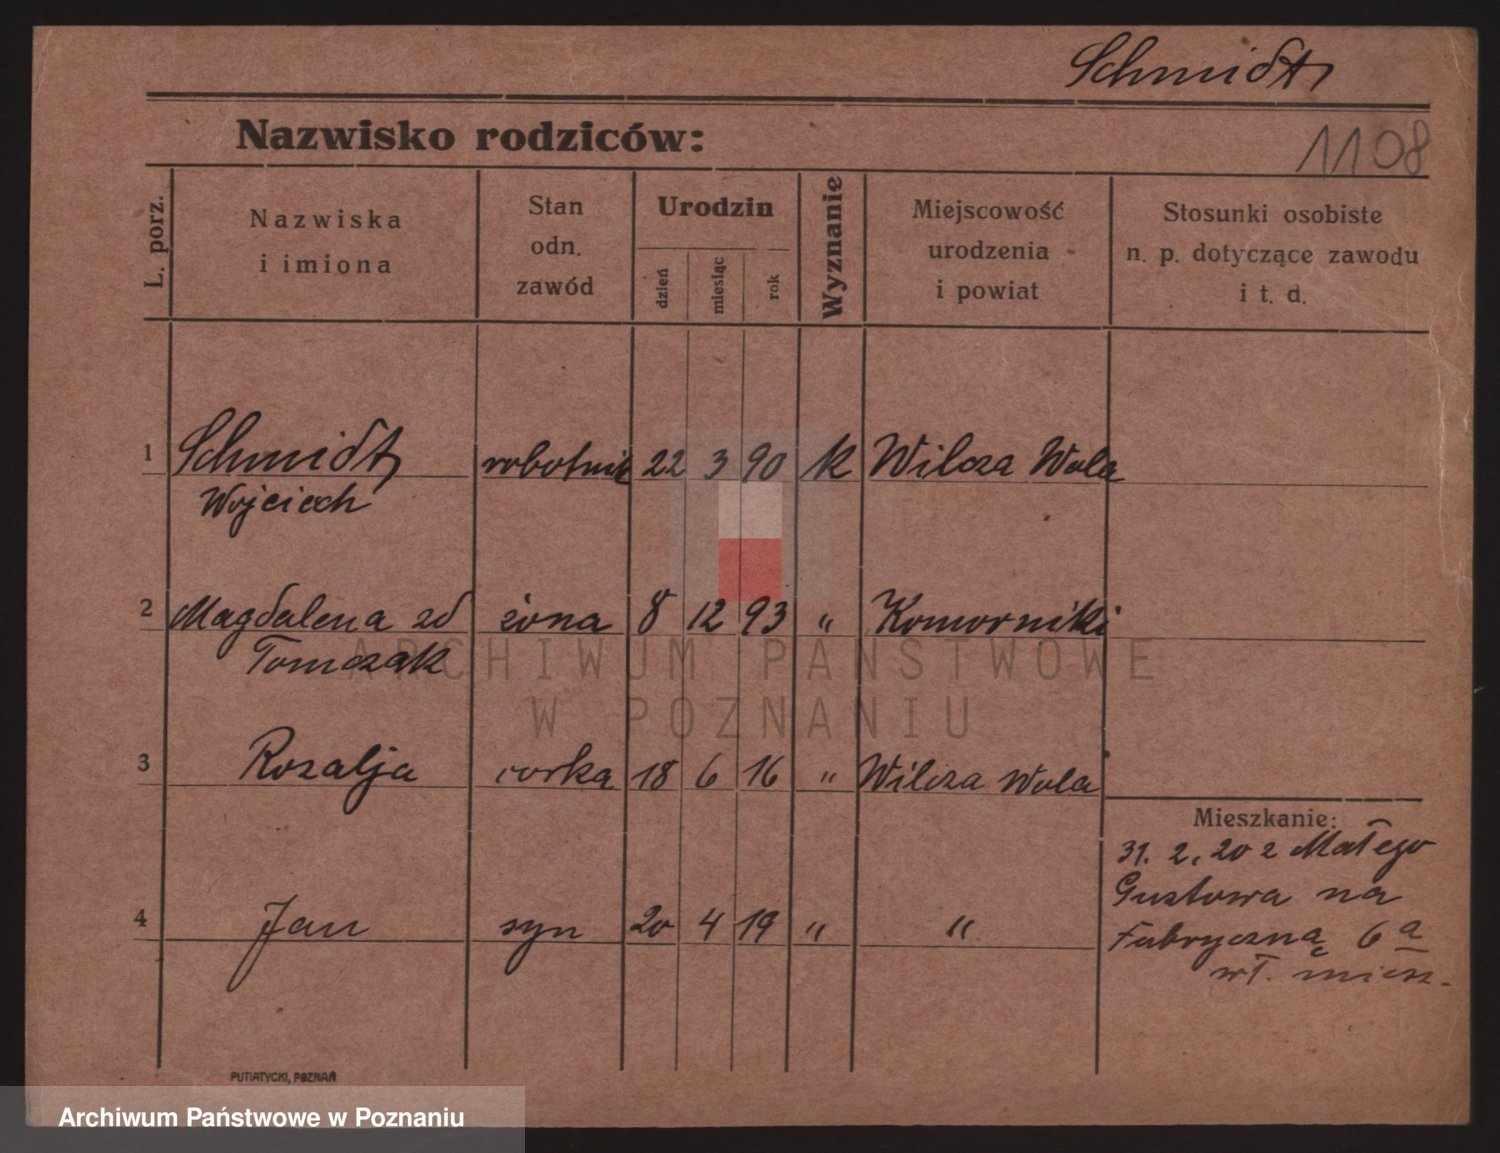 Schmidt
Nazwisko rodziców:
1108
L. porz.
Nazwiska
i imiona
Stan
odn.
zawód
Urodzin
dzień
miesiąc
rok
Wyznanie
Miejscowość
urodzenia
i powiat
Stosunki osobiste
n. p. dotyczące zawodu
i t. d.
1 Schmidt robotnik 22 3 90 k Wilcza Wola
Wojciech
2 Magdalena zd żona 8 12 93 " Komorniki
Tomczak
ARCHIWUM PAŃSTWOWE
W POZNANIU
3 Rozalja corka 18 6 16 " Wilcza Wola
Mieszkanie:
31. 2. 20 z Małego
Gustowa na
4 Jan syn 20 4 19 " "
Fabryczną 6 a
wł. miesz.
PUTIATYCKI, POZNAŃ
Archiwum Państwowe w Poznaniu